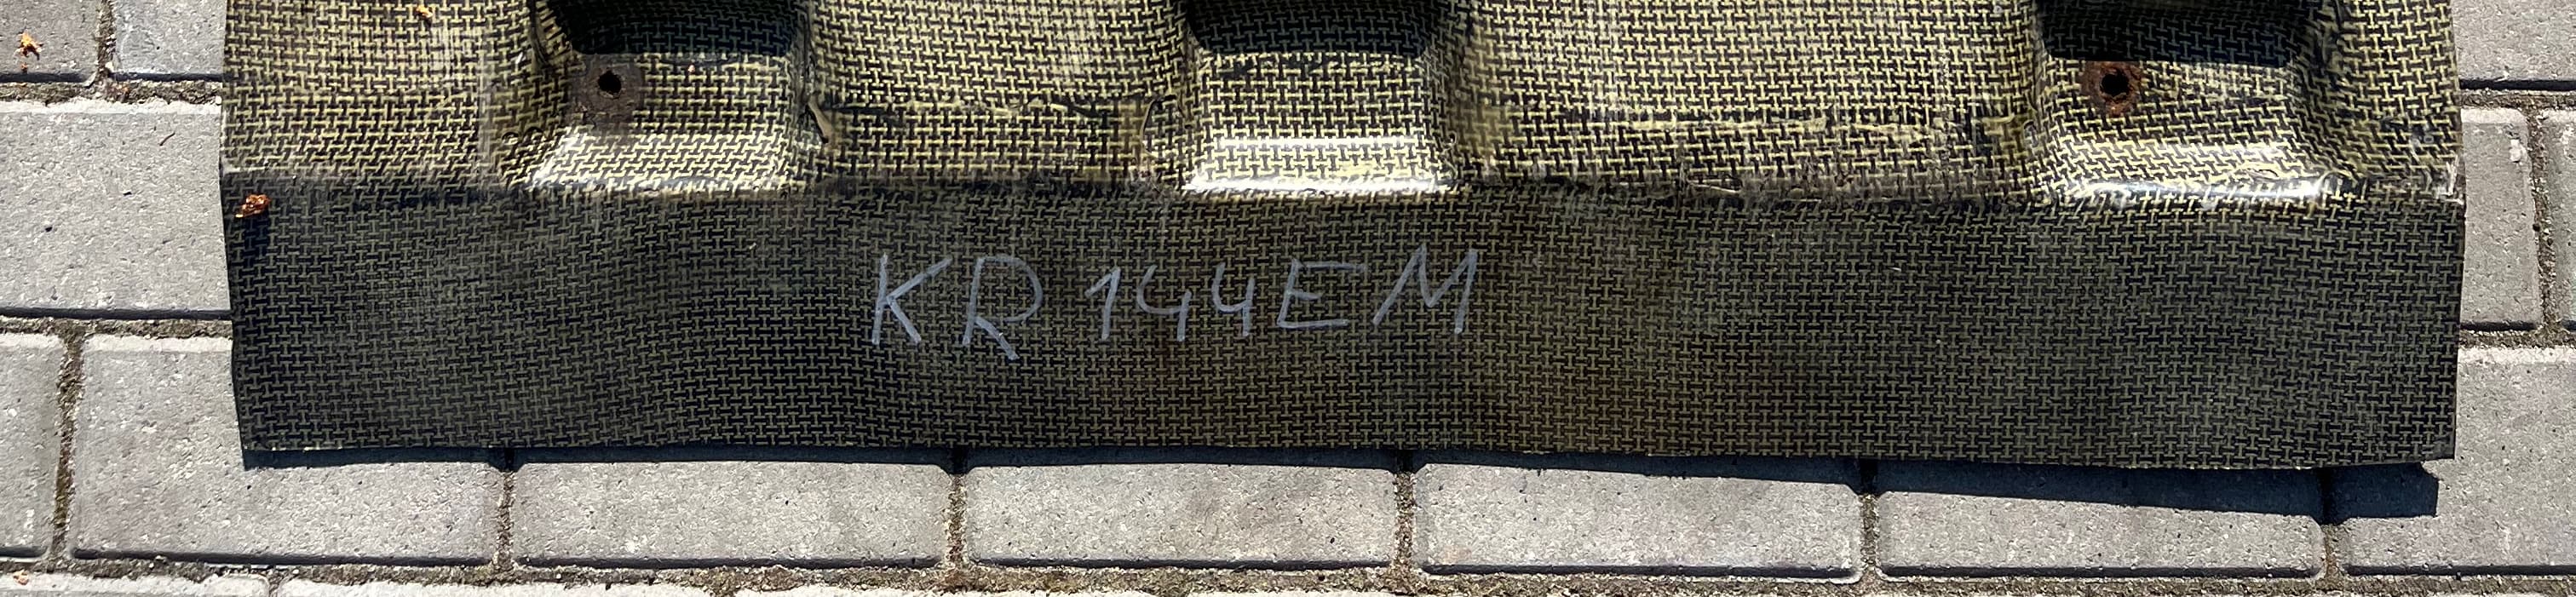 KR 144EM